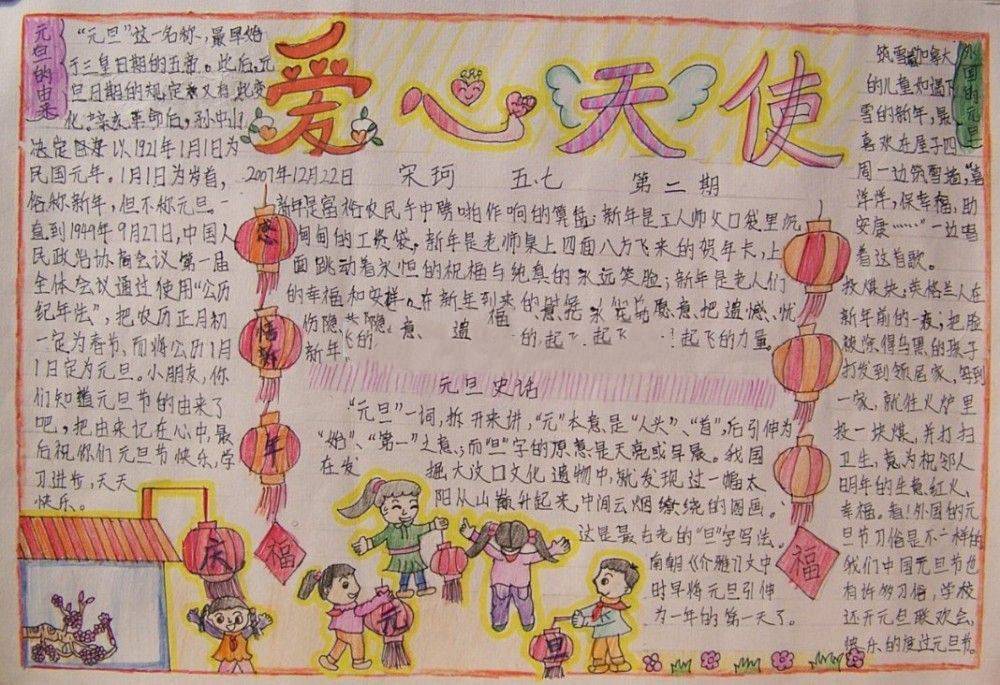 爱心天使
2007年12月22日 宋珂 五.七 第二期
元旦的由来
“元旦”这一名称，最早始
于三皇
五帝。此后，元
旦日期的规定
化。辛亥革命后，孙中山
决定
以1921年1月1日为
民国元年。1月1日为岁首，
俗称新年，但不称元旦。一
直到1949年9月27日，中国人
民政治协商会议第一届
全体会议通过使用“公历
纪年法”，把农历正月初
一定为春节，而将公历1月
1日定为元旦。小朋友，你
们知道元旦节的由来了
吧，把由来记在心中，最
后祝你们元旦节快乐，学
习进步，天天
快乐。
新年是富裕农民手中噼啪作响的算盘；新年是工人师火口袋里沉
甸甸的工资袋。新年是老师桌上四面八方飞来的贺年卡，上
面跳动着永恒的祝福与纯真的永远笑脸；新年是老人们
的幸福和安祥。在新年到来的
愿意把遗憾、忧
伤隐
隐 意、遗 福 的，起飞，起飞 ！起飞的力量。
新年 飞的
元旦史话
“元旦”一词，拆开来讲，“元”本意是“人头”、“首”，后引伸为
“始”、“第一”之意；而“旦”字的原意是天亮或早晨。我国
在发 掘大汶口文化遗物中，就发现过一幅太
阳从山巅升起来，中间云烟缭绕的图画。
这是最古老的“旦”字写法。
南朝《介雅》文中
时早将元旦引伸
为一年的第一天了。
外国的元旦
筑雪
加拿大
的儿童如遇下
雪的新年，最
喜欢在屋子四
周一边筑雪墙，“喜
洋洋，保幸福，助
安康……”一边唱
着这首歌。
投煤块：英格兰人在
新年前的一夜，把脸
被涂得乌黑的孩子
打发到邻居家，每到
一家，就往火炉里
投一块煤，并打扫
卫生，竟为祝邻人
明年的生意红火、
幸福。看！外国的元
旦节习俗是不一样的
我们中国元旦节也
有许多习俗，学校
还开元旦联欢会，
快乐的度过元旦节。
感
悟新
年
福
福
庆
元
旦